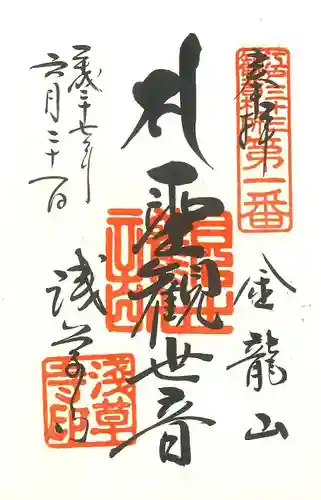 奉拝
第一番
金龍山
聖觀世音
浅草寺
平成二十七年
六月二十一日
浅草